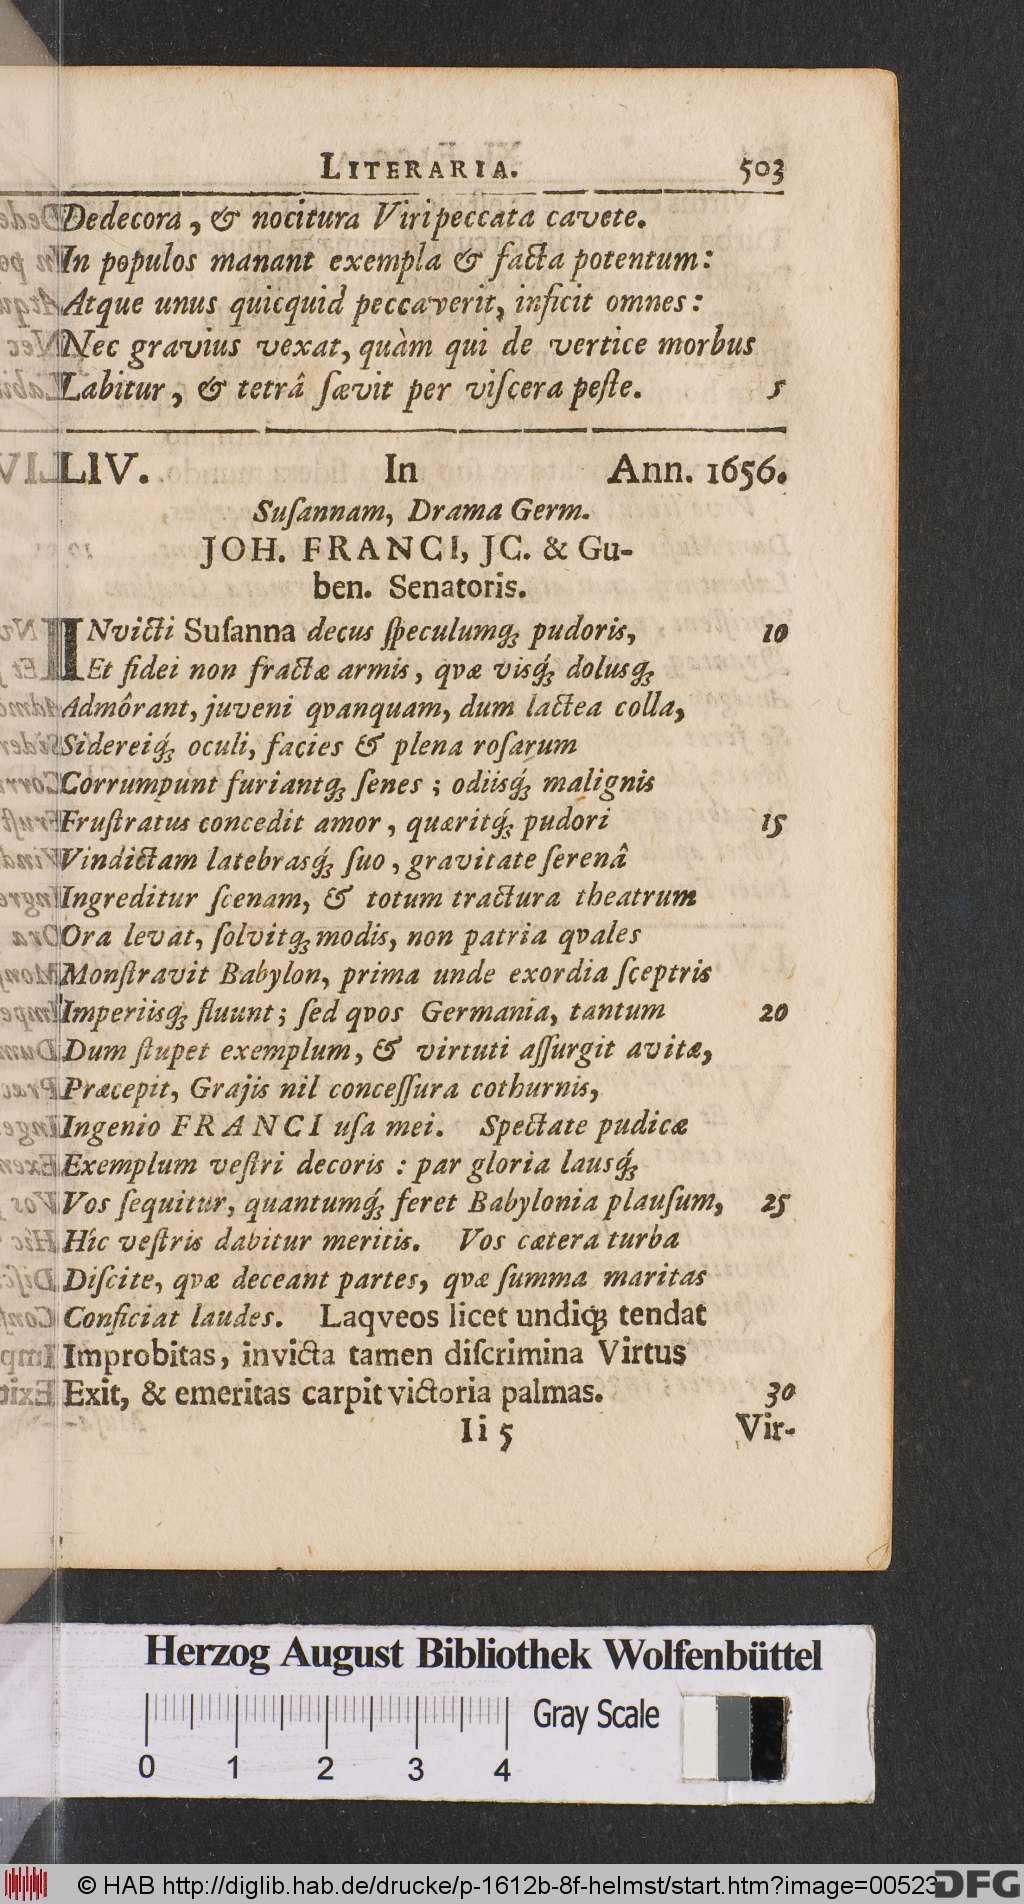 LITERARIA. 503
Dedecora, & nocitura Viri peccata cavete.
In populos manant exempla & facta potentum:
Atque unus quicquid peccaverit, inficit omnes:
Nec gravius vexat, quàm qui de vertice morbus
Labitur, & tetrâ sævit per viscera peste. 5
LIV. In Ann. 1656.
Susannam, Drama Germ.
JOH. FRANCI, JC. & Gu-
ben. Senatoris.
INvicti Susanna decus speculumq́; pudoris, 10
Et fidei non fractæ armis, qvæ visq́; dolusq́;
Admôrant, juveni qvanquam, dum lactea colla,
Sidereiq́; oculi, facies & plena rosarum
Corrumpunt furiantq́; senes; odiisq́; malignis
Frustratus concedit amor, quæritq́; pudori 15
Vindictam latebrasq́; suo, gravitate serenâ
Ingreditur scenam, & totum tractura theatrum
Ora levat, solvitq́; modis, non patria qvales
Monstravit Babylon, prima unde exordia sceptris
Imperiisq́; fluunt; sed qvos Germania, tantum 20
Dum stupet exemplum, & virtuti assurgit avitæ,
Præcepit, Grajis nil concessura cothurnis,
Ingenio FRANCI usa mei. Spectate pudicæ
Exemplum vestri decoris: par gloria lausq́;
Vos sequitur, quantumq́; feret Babylonia plausum, 25
Hîc vestris dabitur meritis. Vos cætera turba
Discite, qvæ deceant partes, qvæ summa maritas
Conficiat laudes. Laqveos licet undiq; tendat
Improbitas, invicta tamen discrimina Virtus
Exit, & emeritas carpit victoria palmas. 30
Ii 5 Vir-
Herzog August Bibliothek Wolfenbüttel
Gray Scale
0 1 2 3 4
© HAB http://diglib.hab.de/drucke/p-1612b-8f-helmst/start.htm?image=00523
DFG